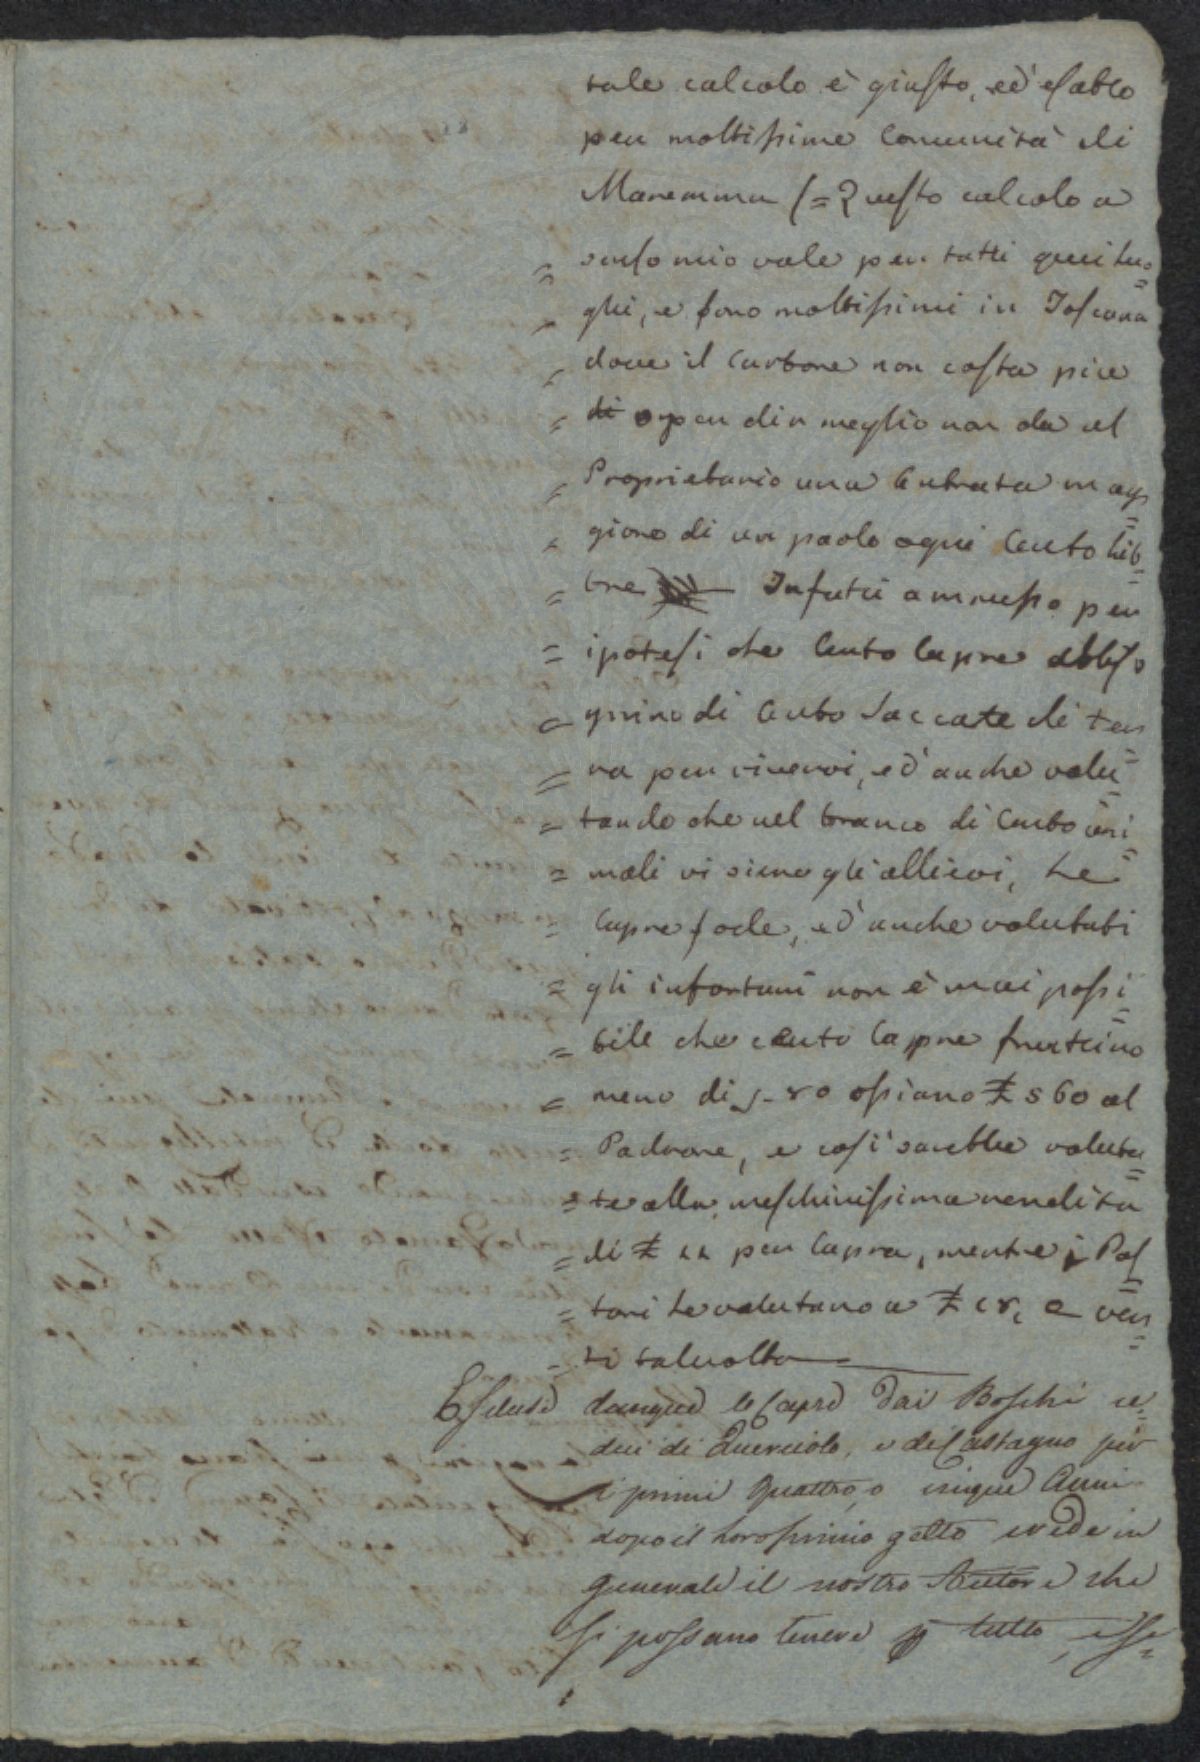 tale calcolo è giusto, ed esatto
per moltissime Comunità di
Maremma (= Questo calcolo a
= senso mio vale per tutti quei luo=
= ghi, e sono moltissimi in Toscana
= dove il Carbone non costa piu
= di o per dir meglio non da al
= Proprietario una Entrata mag=
= giore di un paolo ogni Cento lib=
= bre Infatti ammesso per
= ipotesi che Cento Capre abbiso
= gnino di Cento Saccate di ter=
= ra per vivervi, ed anche valu=
= tando che nel branco di Cento ani=
= mali vi sieno gli allievi, le
= Capre sode, ed anche valutati
= gli infortuni non è mai possi=
= bile che cento Capre fruttino
= meno di 80 ossiano £ 560 al
= Padrone, e così sarebbe valuta=
= te alla meschinissima rendita
= di £ per Capra, mentre i Pas=
= tori le valutano a £ e ven=
= ti talvolta
Escluse dunque le Capre dai Boschi ce=
dui di Querciolo, e di Castagno per
i primi quattro, o cinque Anni
dopo il loro primo getto crede in
generale il nostro Autore che
si possano tenere p tutto, esse=